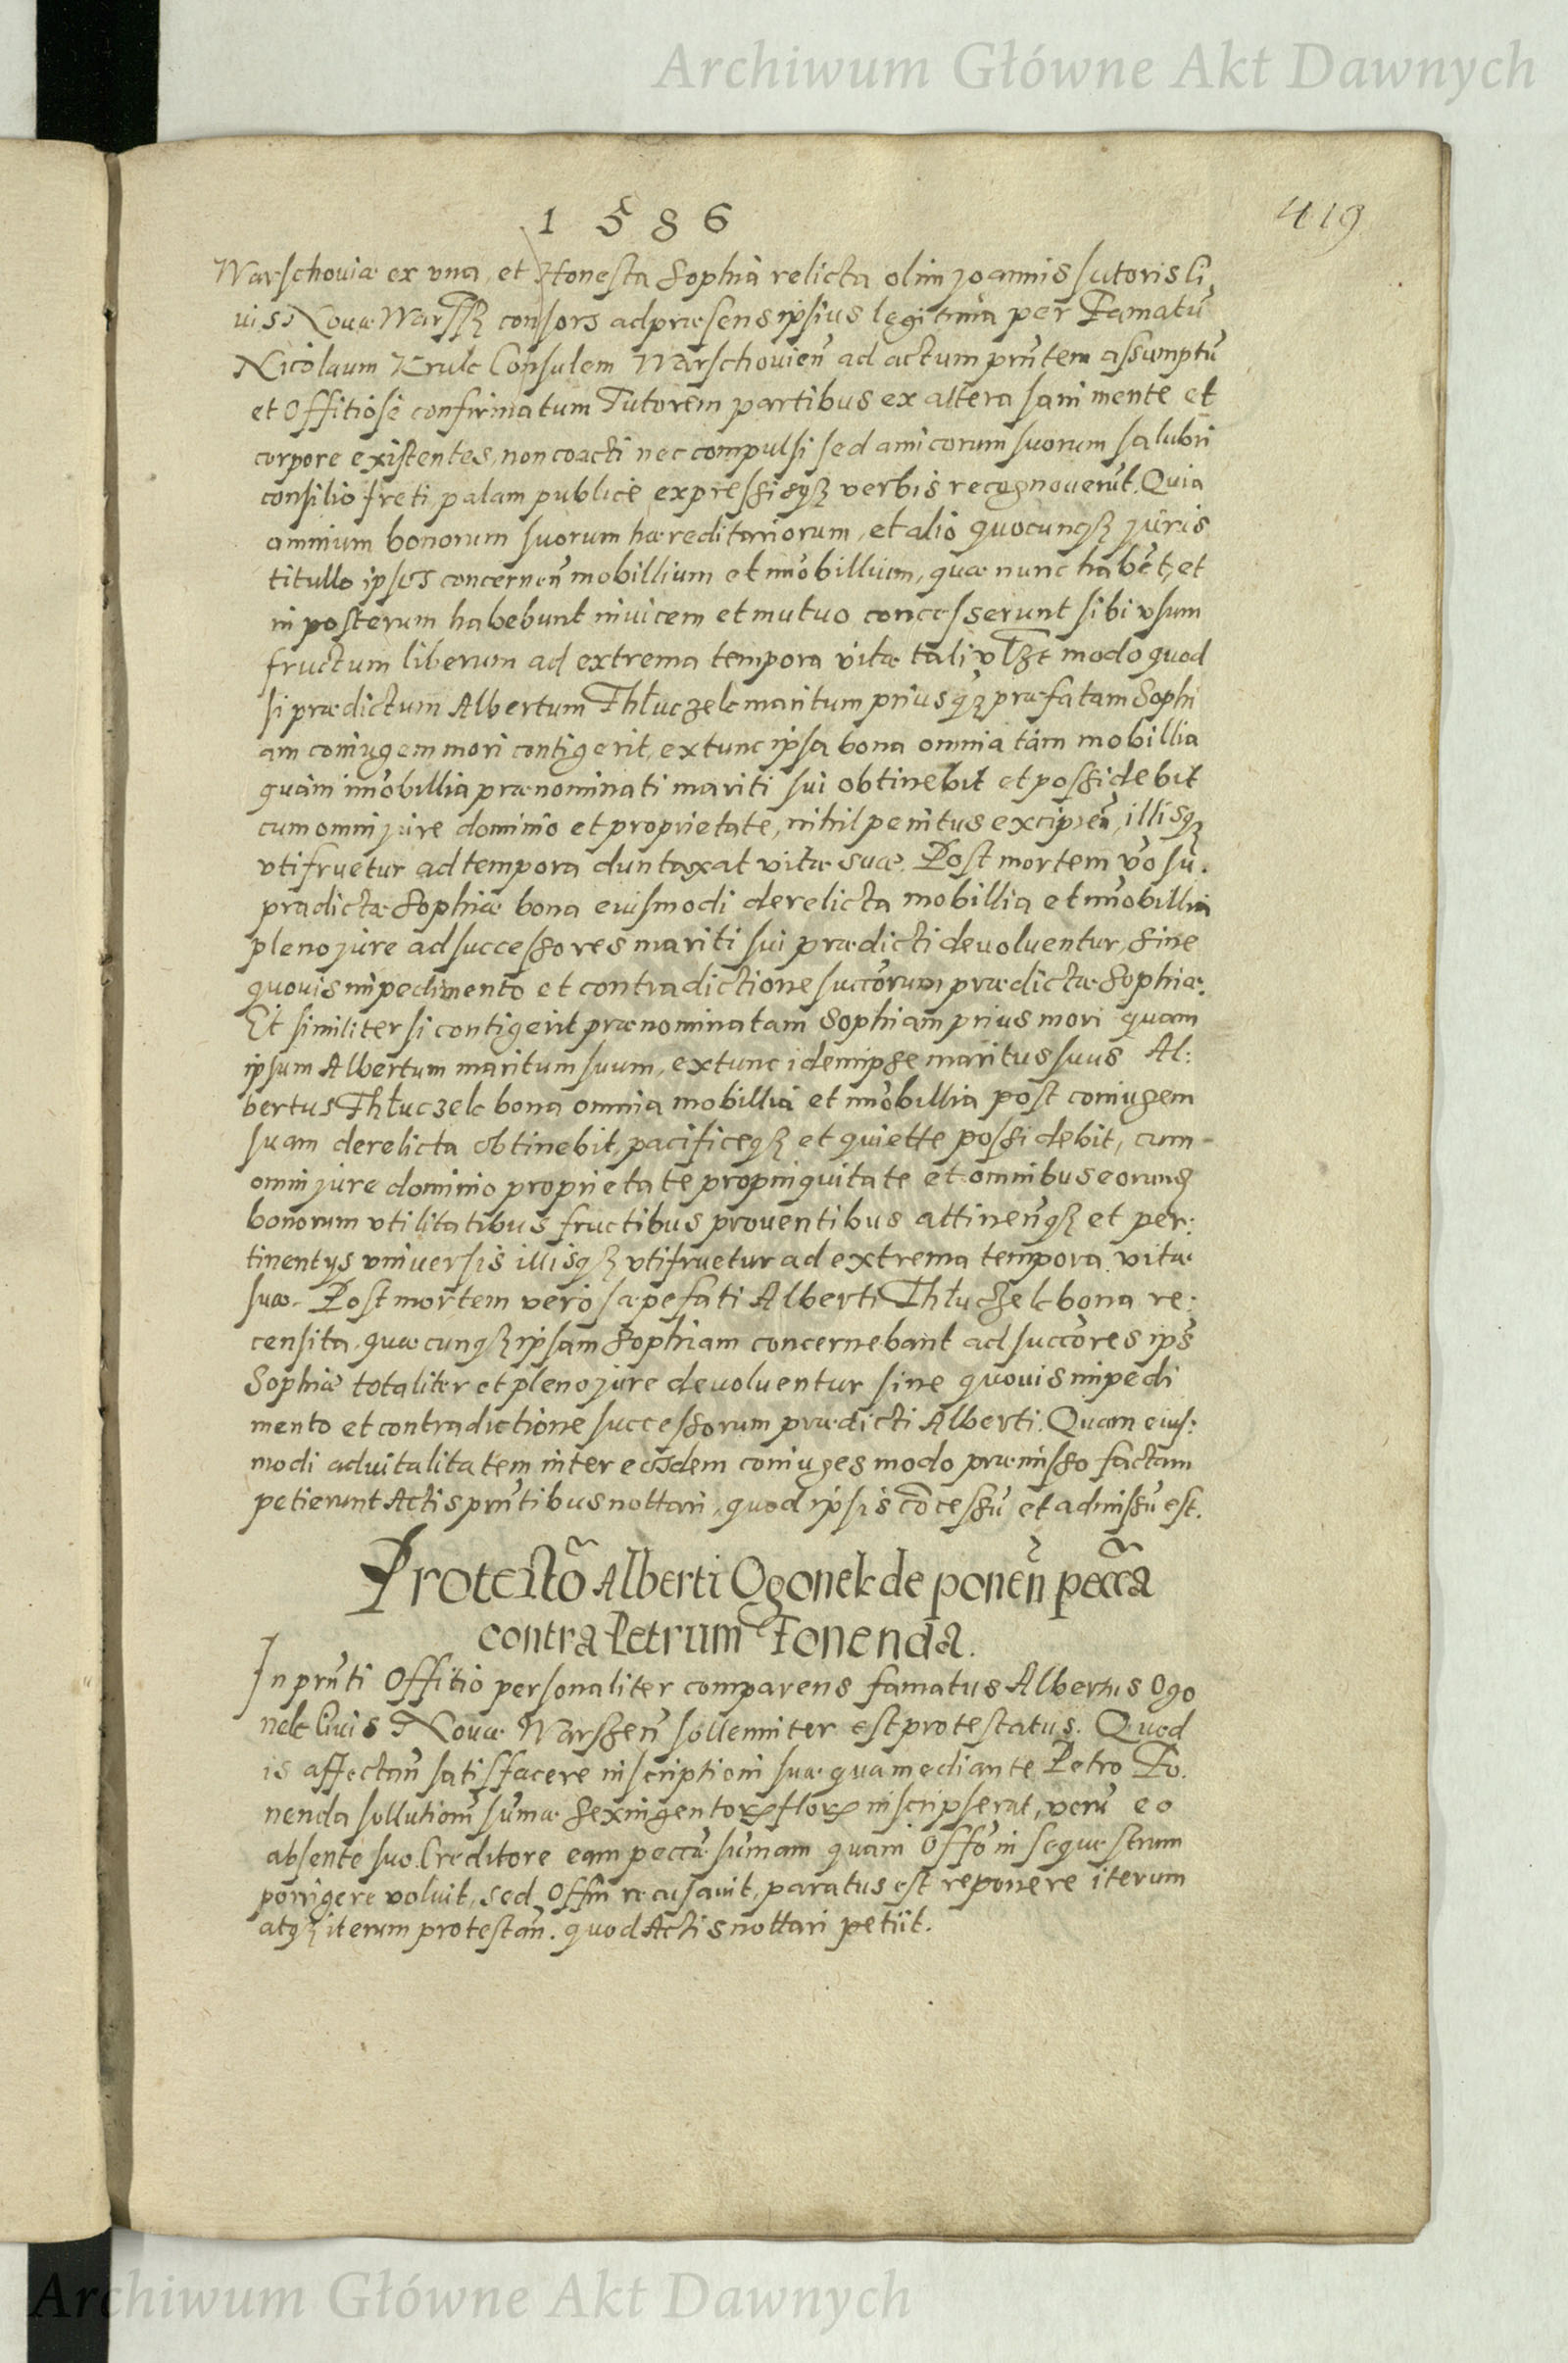 Archiwum Główne Akt Dawnych
1586
419
Warschouiæ ex vna, et Honesta Sophia relicta olim Joannis sutoris Ci,
uis Nouæ Warssz consors ad præsens ipsius legitima per Famatū
Nicolaum Krulc Consulem Warschouieñ ad actum prñtem assumptū
et Offitiose confirmatum Tutorem partibus ex altera sani mente et
corpore existentes, non coacti nec compulsi sed amicorum suorum salubri
consilio freti palam publicè expressisqȝ verbis recognouerūt. Quia
omnium bonorum suorum hæreditariorum, et alio quocunqȝ juris
titullo ipsos concerneñ mobillium et im̄obillium, quæ nunc habēt, et
in posterum habebunt inuicem et mutuo concesserunt sibi vsum
fructum liberum ad extrema tempora vitæ tali vl̄ȝt modo quod
si prædictum Albertum Thłuczek maritum priusqȝ præfatam Sophi
am coniugem mori contigerit, extunc ipsa bona omnia tàm mobillia
quàm im̄obillia prænominati mariti sui obtinebit et possidebit
cum omni jure dominio et proprietate, nihil penitus excipieñ, illisqȝ
vtifruetur ad tempora duntaxat vitæ suæ. Post mortem v̄o su.
pradictæ Sophiæ bona eiusmodi derelicta mobillia et im̄obillia
pleno jure ad successores mariti sui prædicti deuoluentur, sine
quouis impedimento et contradictione succ̄orum prædictæ Sophiæ.
Et similiter si contigerit prænominatam Sophiam prius mori quam
ipsum Albertum maritum suum, extunc idem ipse maritus suus Al:
bertus Thłuczek bona omnia mobillia et im̄obillia post coniugem
suam derelicta obtinebit, pacificeqȝ et quiette possidebit, cum
omni jure dominio proprietate propinquitate et omnibus eorunȝ
bonorum vtilitatibus fructibus prouentibus attineñqȝ et per:
tinentys vniuersis illisqȝ vtifruetur ad extrema tempora vitæ
suæ. Post mortem verò sæpefati Alberti Thłuczek bona re:
censita quæcunqȝ ipsam Sophiam concernebant ad succ̄ores ips̄
Sophiæ totaliter et pleno jure deuoluentur sine quouis impedi
mento et contradictione successorum prædicti Alberti. Quam eius:
modi aduitalitatem inter eosdem coniuges modo præmisso factam
petierunt Actis prñtibus nottari, quod ipsis cōcessū et admissū est.
Protestō Alberti Ogonek de poneñ pecc̃a
contra Petrum Fonenda.
In prñti Offitio personaliter comparens famatus Albertus Ogo
nek Ciuis Nouæ Warszeñ sollenniter est protestatus. Quod
is affectañ satisfacere inscriptioni suæ qua mediante Petro Fo.
nenda sollutionē sūmæ sexingentorꝝ florꝝ inscripserat, verū eo
absente suo Creditore eam peccæ sūmam quam Offō in sequestrum
porrigere voluit, sed Offm recusauit, paratus est reponere iterum
atqȝ iterum protestañ. quod Actis nottari petiit.
Archiwum Główne Akt Dawnych